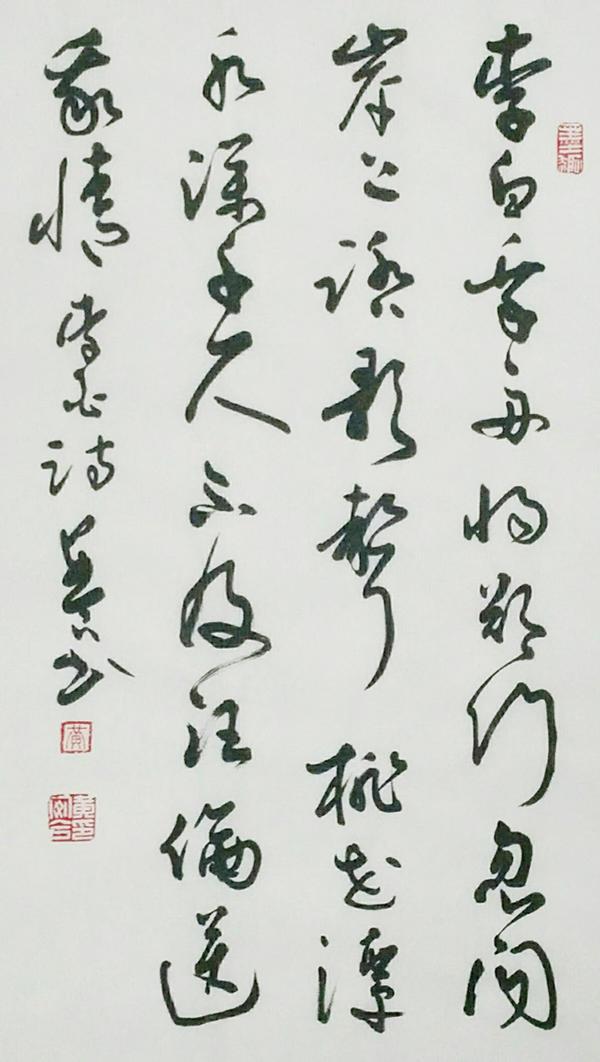 李白乘舟將欲行忽聞
岸上踏歌聲桃花潭
水深千尺不及汪倫送
我情 李白詩